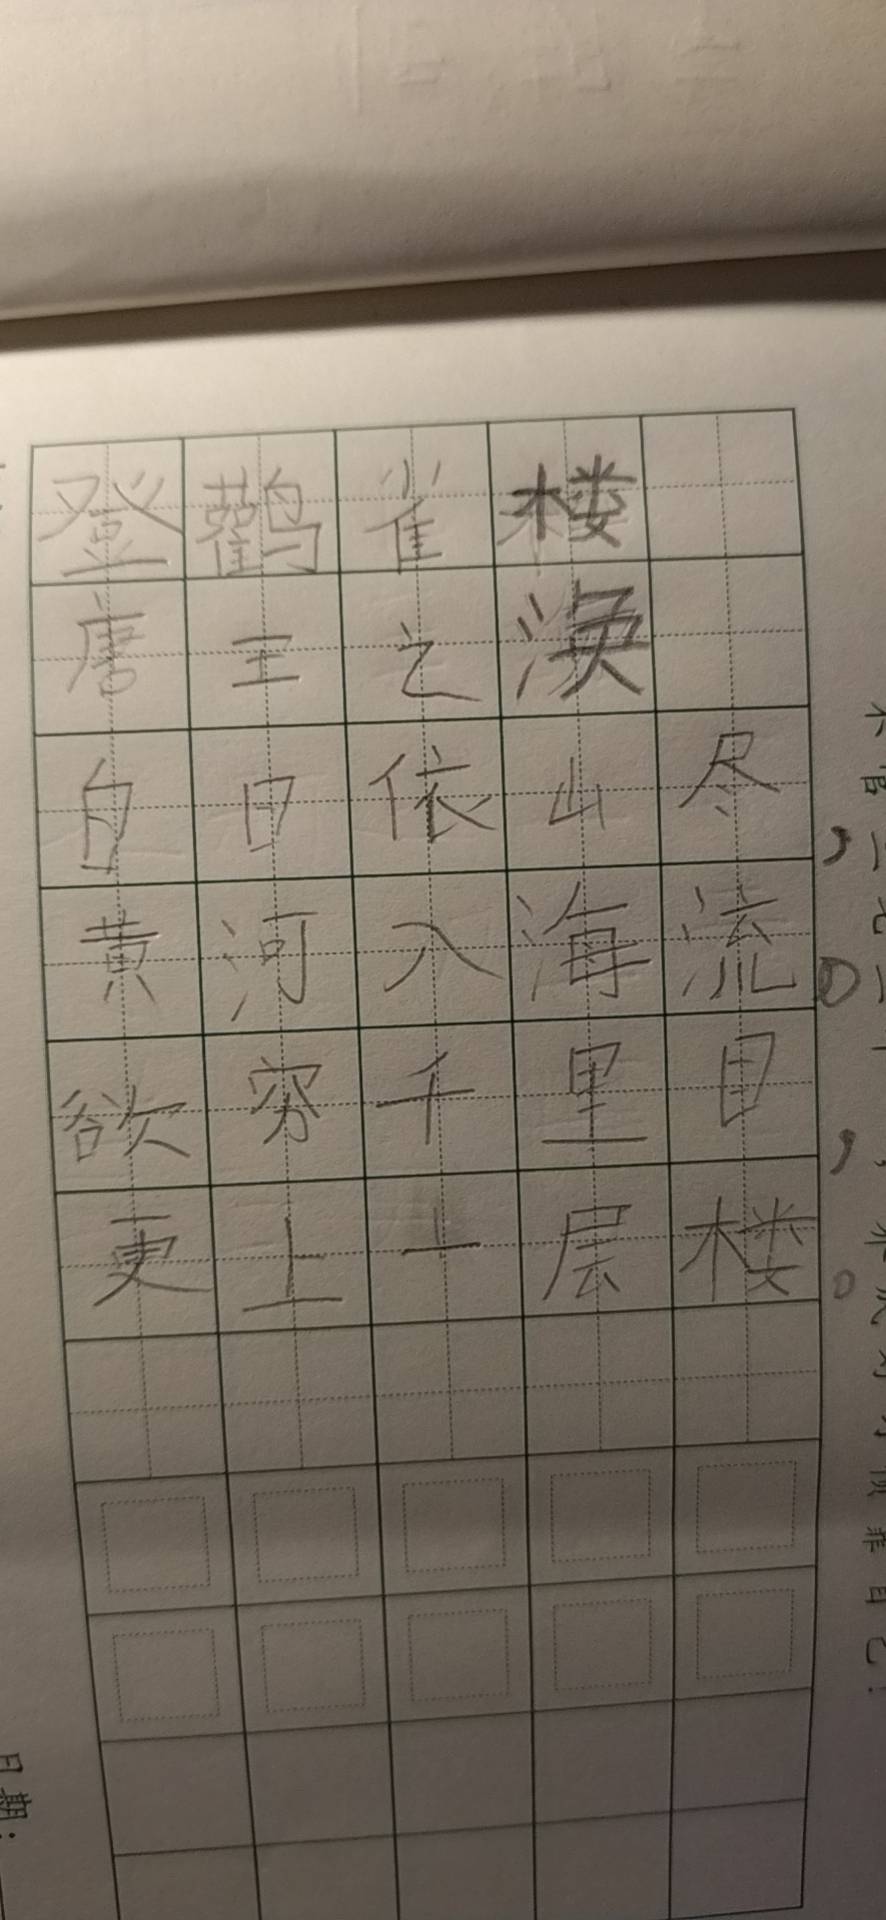 登鹳雀楼
唐王之涣
白日依山尽，
黄河入海流。
欲穷千里目，
更上一层楼。
日期：